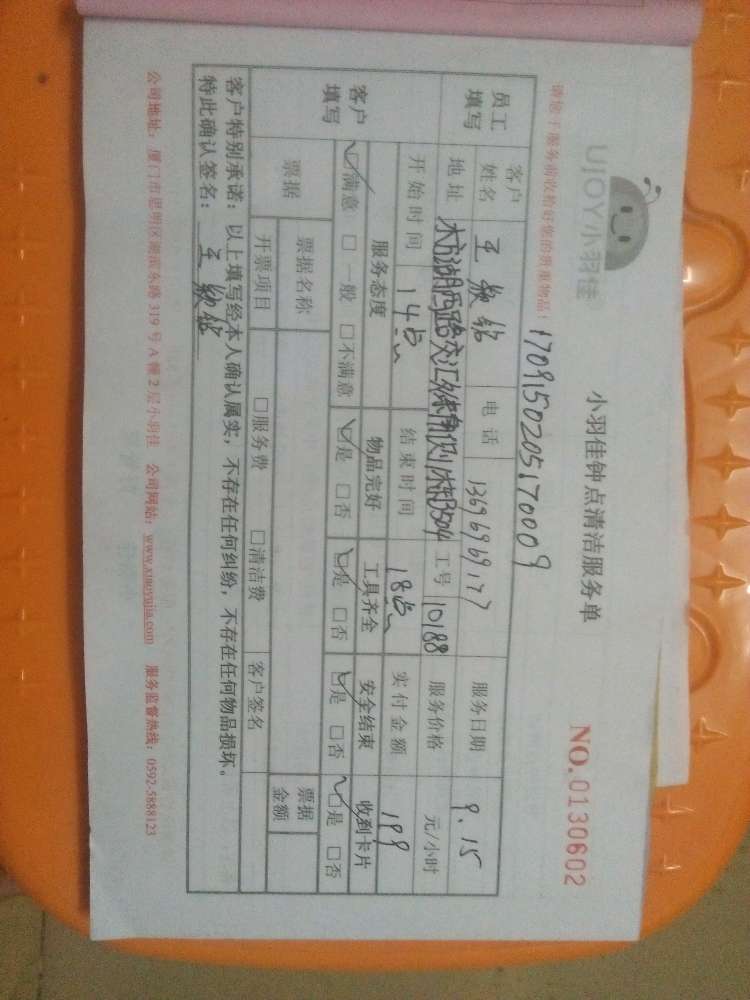 UJOY小羽佳
小羽佳钟点清洁服务单
NO.0130602
请您于服务前收拾好您的贵重物品！
1709150205170009
员工填写
客户姓名 王 电话 13696969177 服务日期 9.15
地址 湖西路交汇处 B504 工号 10188 服务价格 元/小时
客户填写
开始时间 14点 结束时间 18点 实付金额 199
服务态度 物品完好 工具齐全 安全结束 收到卡片
☑满意 □一般 □不满意 ☑是 □否 ☑是 □否 ☑是 □否 ☑是 □否
票据 票据名称 票据金额
开票项目 □服务费 □清洁费 客户签名
客户特别承诺：以上填写经本人确认属实，不存在任何纠纷，不存在任何物品损坏。
特此确认签名：王
公司地址：厦门市思明区湖滨东路319号A幢2层小羽佳 公司网站：www.xiaoyujia.com 服务监督热线：0592-5888123